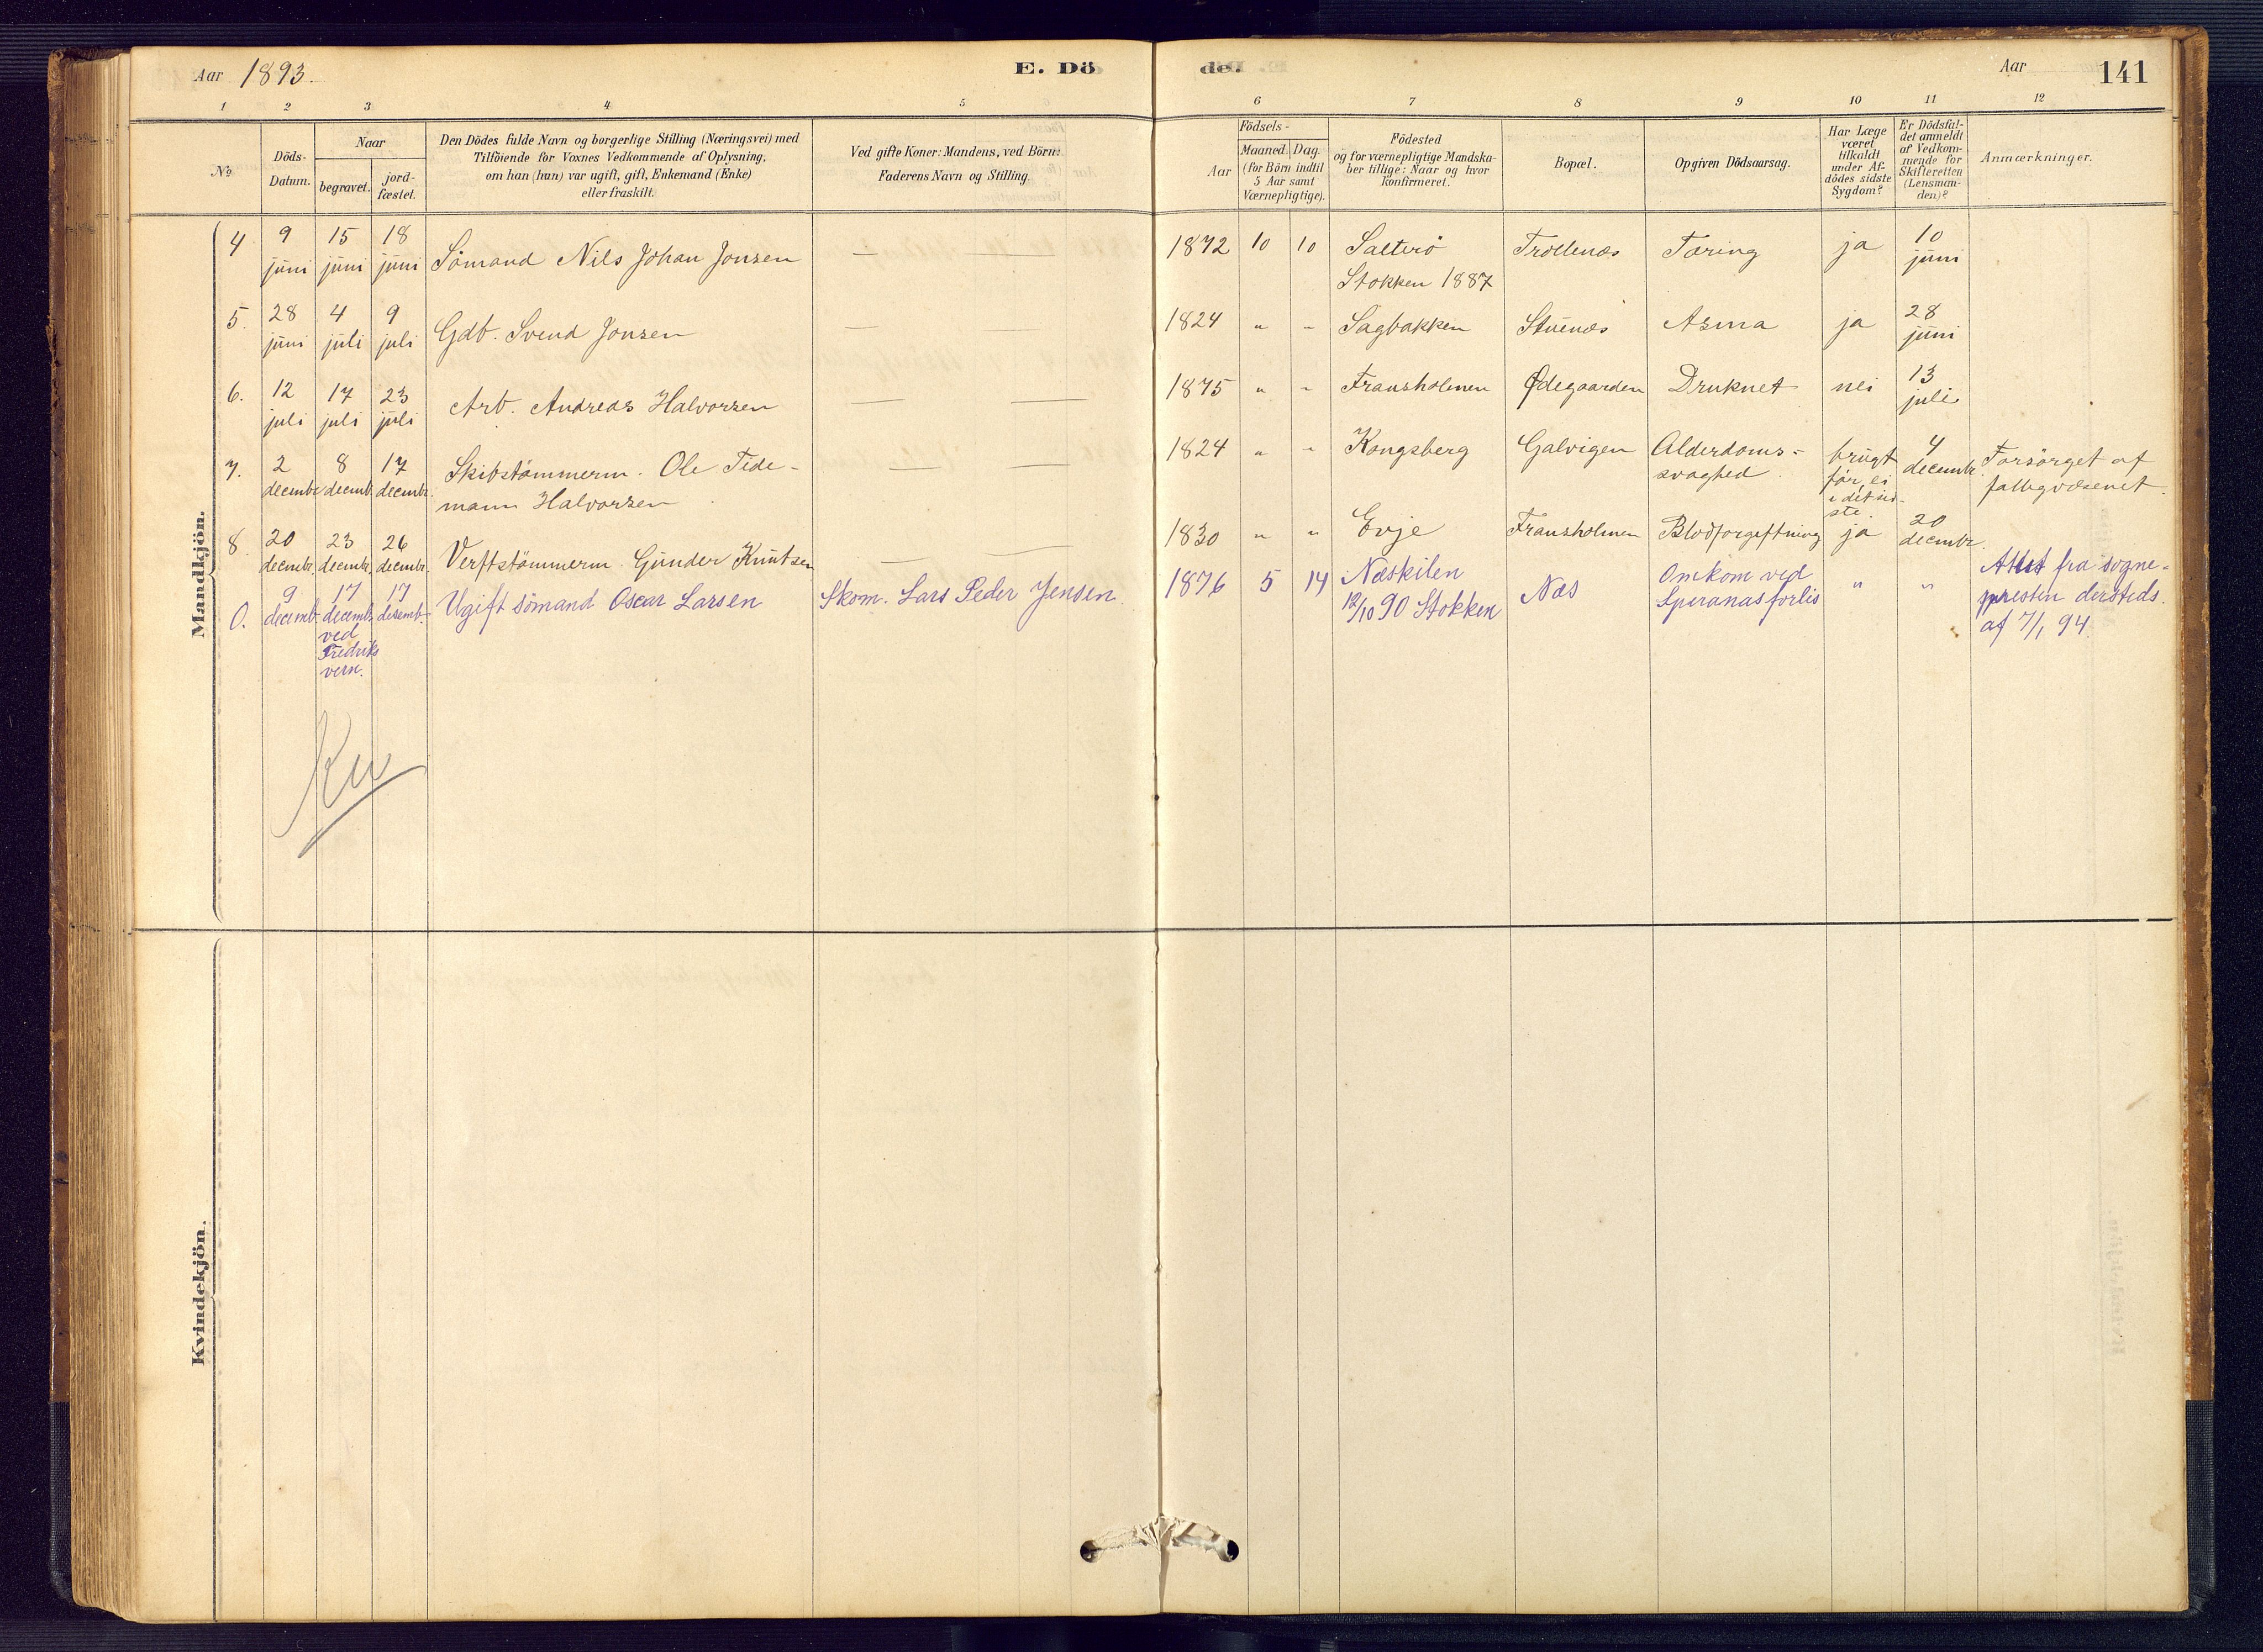 Aar 1893. E. Dö de. Aar 141
1 2 3 4 5 6 7 8 9 10 11 12
No
Döds-
Datum.
Naar
begravet.
jord-
fæstet.
Den Dödes fulde Navn og borgerlige Stilling (Næringsvei) med
Tilföiende for Voxnes Vedkommende af Oplysning,
om han (hun) var ugift, gift, Enkemand (Enke)
eller fraskilt.
Ved gifte Koner: Mandens, ved Börn:
Faderens Navn og Stilling.
Födsels-
Aar
Maaned. Dag.
(for Börn indtil
5 Aar samt
Værnepligtige).
Födested
og for værnepligtige Mandska-
ber tillige: Naar og hvor
konfirmeret.
Bopæl.
Opgiven Dödsaarsag.
Har Læge
været
tilkaldt
under Af-
dödes sidste
Sygdom?
Er Dödsfal-
det anmeldt
af Vedkom-
mende for
Skifteretten
(Lensman-
den)?
Anmærkninger.
Mandkjön.
4 9 juni 15 juni 18 juni Sömand Nils Johan Jonsen — — 1872 10 10 Salterö Trollenæs Tæring ja 10 juni
Stokken 1887
5. 28 juni 4 juli 9 juli Gdb. Svend Jonsen — — 1824 " " Sagbakken Stuenæs Asma ja 28 juni
6. 12 juli 17 juli 23 juli Arb. Andreas Halvorsen — — 1875 " " Fransholmen Ødegaarden Druknet nei 13 juli
7. 2 decembr 8 decemb. 17 decembr. Skibstömmerm. Ole Tide- — — 1824 " " Kongsberg Galvigen Alderdoms- brugt 4 decembr. Forsörget af
mann Halvorsen svaghed för, ei fattigvæsenet.
i det sid-
ste.
8. 20 decembr. 23 decembr. 26 decembr. Verftstömmerm. Gunder Knutsen — — 1830 " " Evje Fransholmen Blodforgiftning ja 20 decembr.
0. 9 decemb. 17 decemb. 17 desemb. Ugift sömand Oscar Larsen Skom. Lars Peder Jensen 1876 5 14 Næskilen Næs Omkom ved " " Attest fra sogne-
ved
Fredriks
vern.
12/10 90 Stokken
Speranas forlis
presten dersteds.
af 7/1 94.
Kvindekjön.